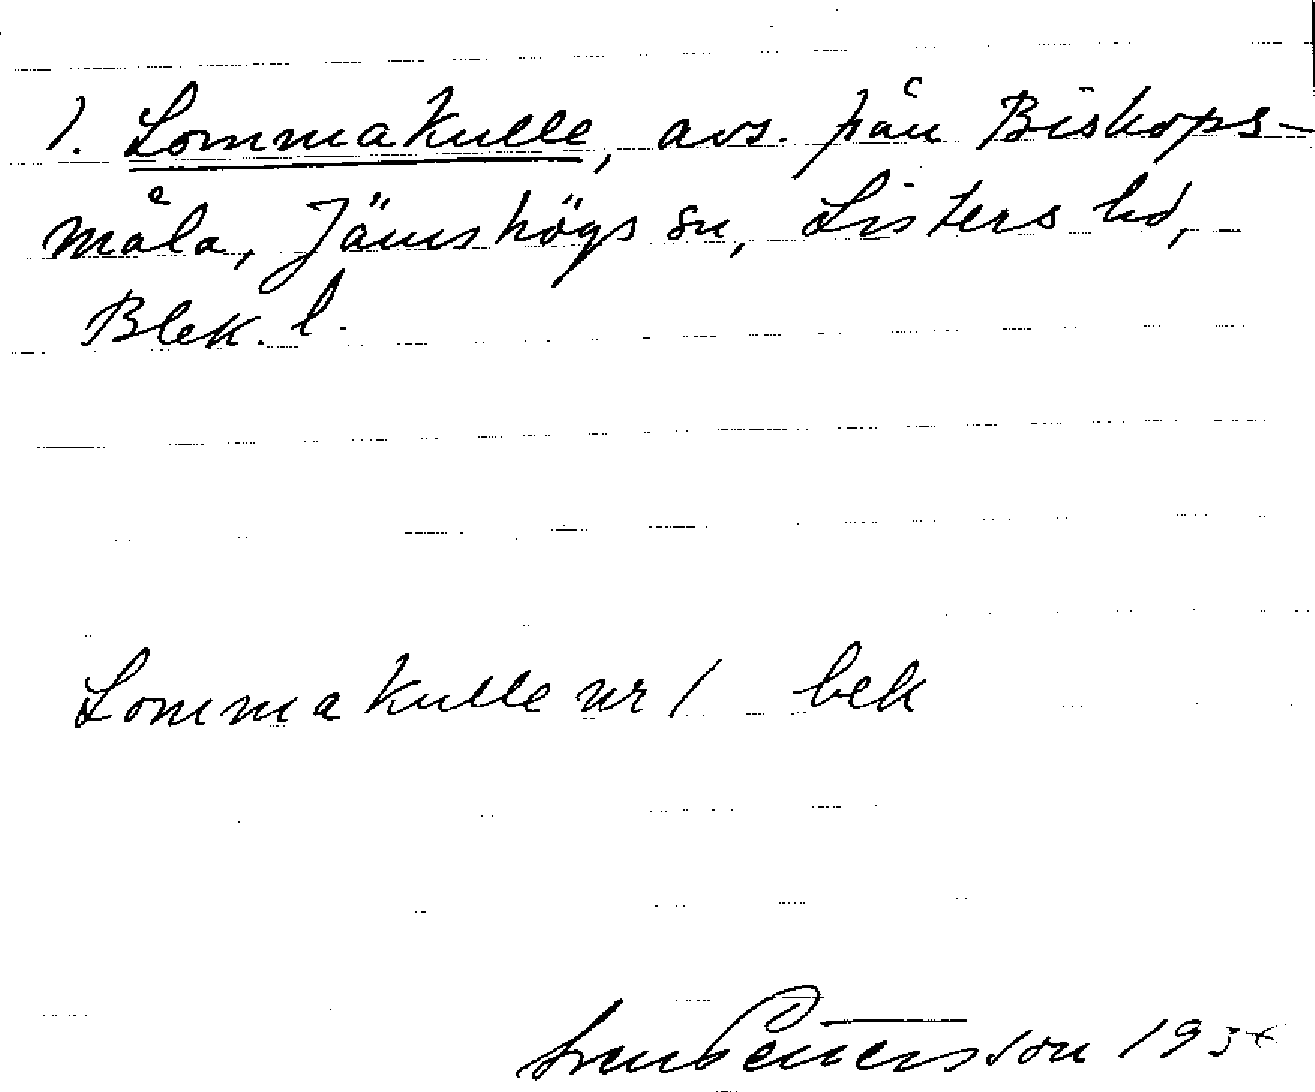 1. Lommakulle, avs. på Biskops-
måla, Jämshögs sn, Listers hd,
Blek. l.
Lommakulle nr 1 bek
Pettersson 193